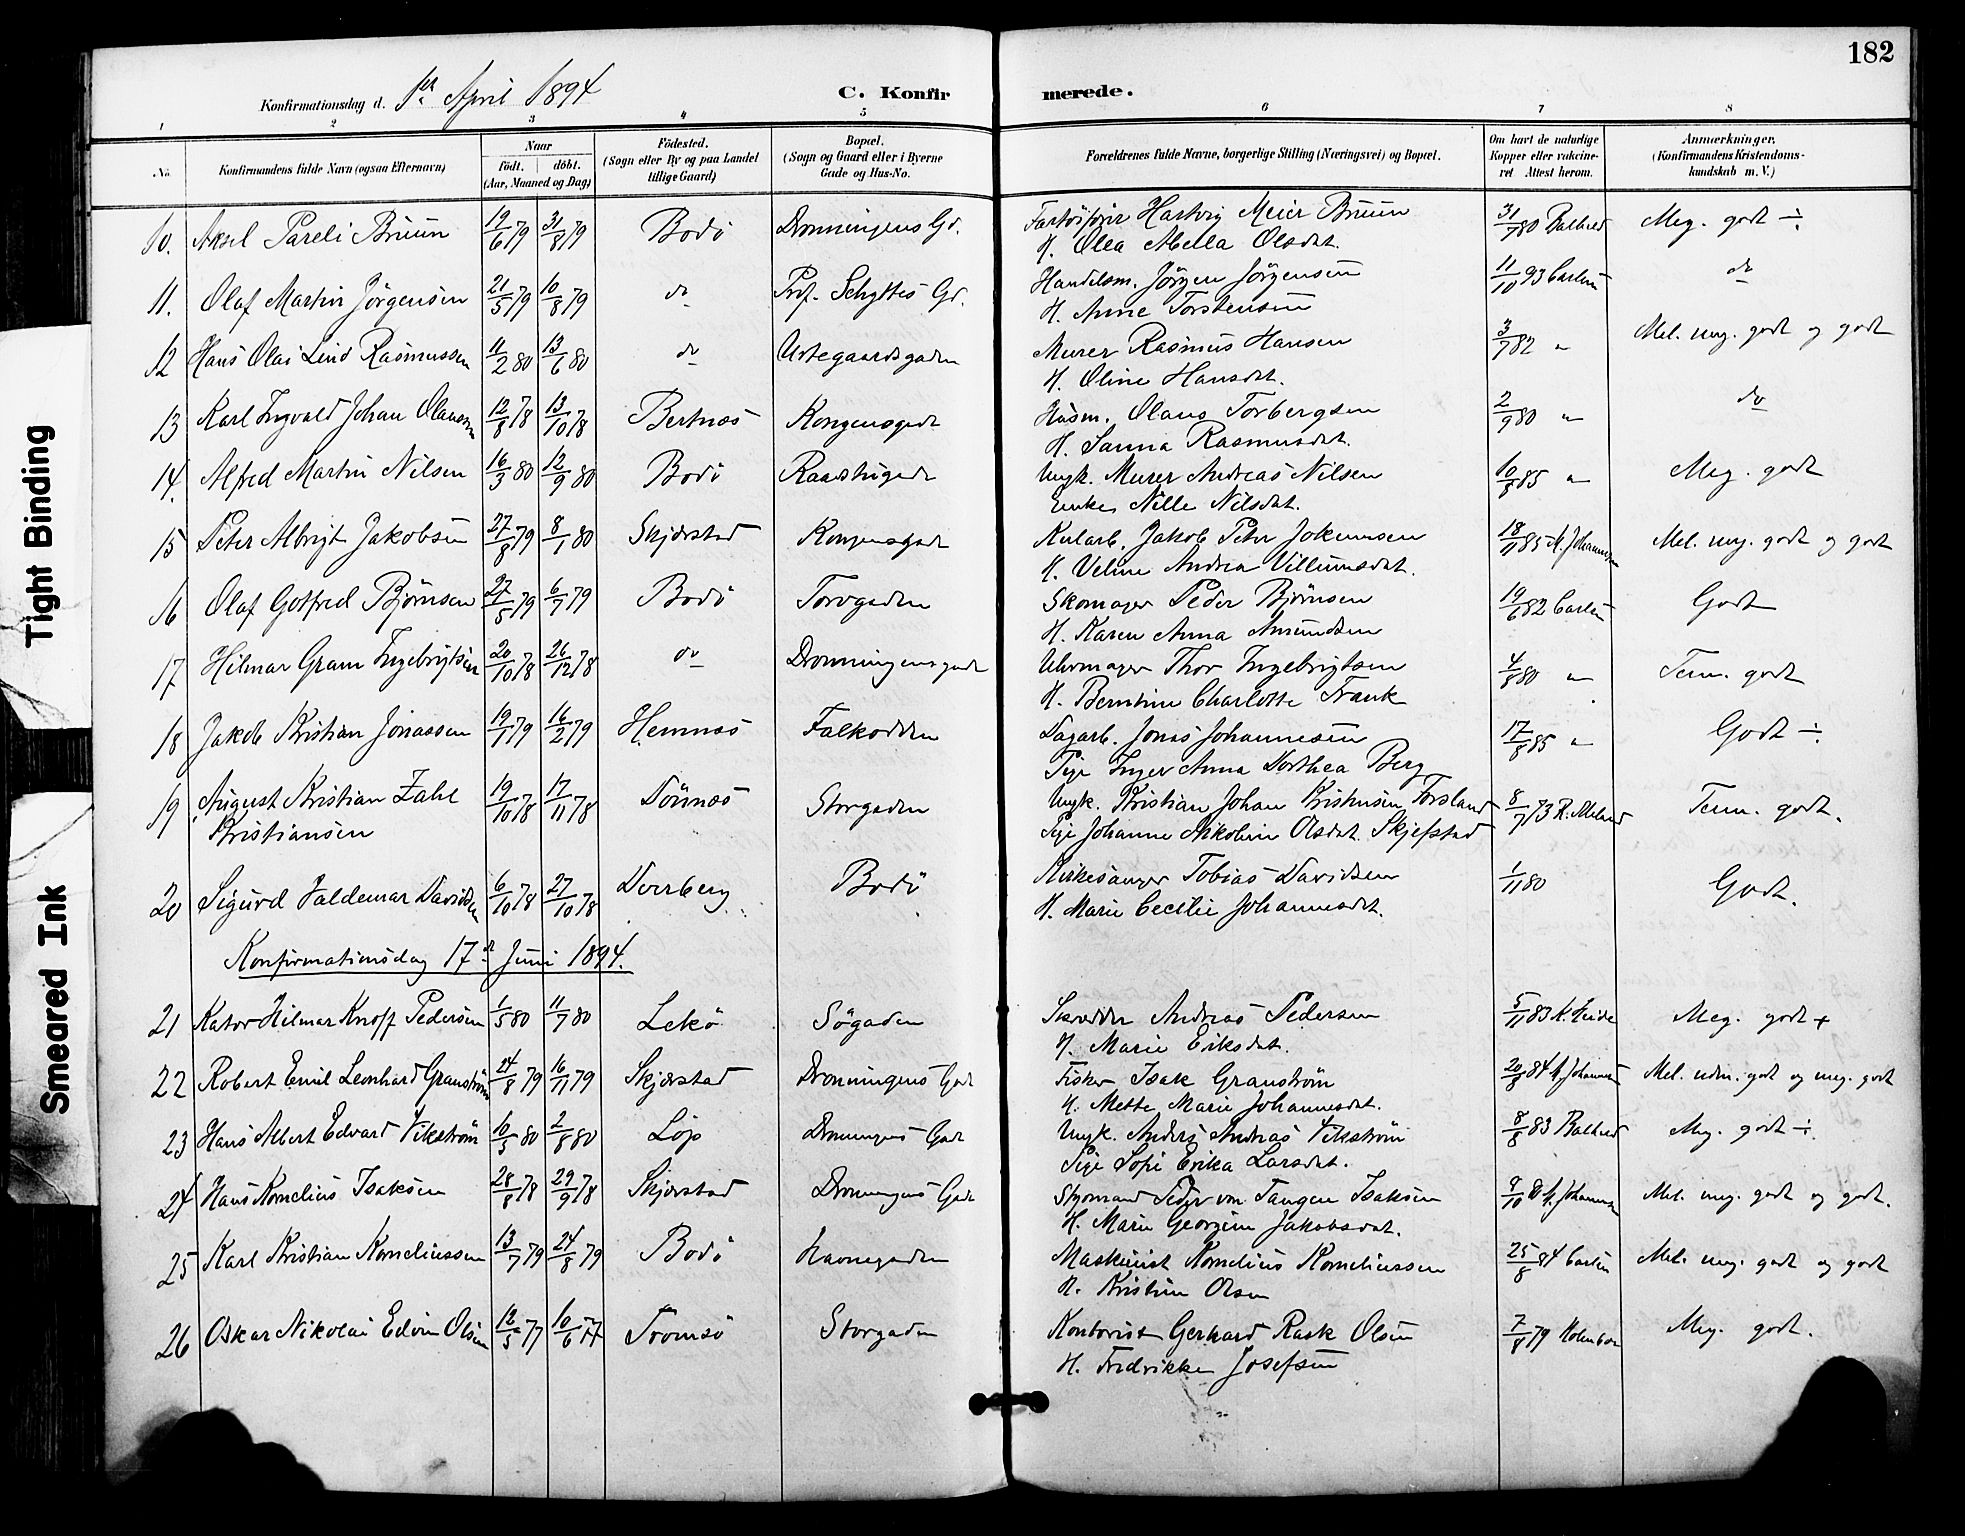 182
Konfirmationsdag d. 1ste April 1894
C. Konfirmerede.
1 2 3 4 5 6 7 8
No. Konfirmandens fulde Navn (ogsaa Efternavn) Naar født. døbt. (Aar, Maaned og Dag) Fødested. (Sogn eller By og paa Landet tillige Gaard) Bopæl. (Sogn og Gaard eller i Byerne Gade og Hus-No. Forældrenes fulde Navne, borgerlige Stilling (Næringsvei) og Bopæl. Om havt de naturlige Kopper eller vakcineret Attest herom. Anmærkninger. (Konfirmandens Kristendomskundskab m. V.)
10. Aksel Pareli Bruun 19/6 79 31/8 79 Bodö Dronningens Gd. Hartvig Meier Bruun 31/7 80 Meg. godt ÷
H. Olea Abella Olsdat.
11. Olaf Martin Jörgensen 21/5 79 10/8 79 do Prof. Schyttes Gd. Handelsm. Jörgen Jörgensen 11/10 93 do
H. Anne Torstensen
12 Hans Olai Lind Rasmussen 11/2 80 13/6 80 do Murer Rasmus Hansen 3/7 82 " Mel. meg. godt og godt
H. Oline Hansdat.
13 Karl Ingvald Johan Olaussen 12/8 78 13/10 78 Bertnes Kongensgade Husm. Olaus Torbergsen 2/9 80 " do
H. Sanna Rasmusdat.
14. Alfred Martin Nilsen 16/3 80 12/9 80 Bodö Raadstugade Ungk. Murer Andreas Nilsen 10/8 85 " Meg. godt
Enke Nille Nilsdat.
15 Peter Albrigt Jakobsen 27/8 79 8/1 80 Skjerstad Kongensgade Jakob Peter Jokumsen Mel. meg. godt og godt
H. Veline Andrea Villumsdat.
16 Olaf Gotfred Björnsen 27/5 79 6/7 79 Bodö Torvgaden Skomager Peder Björnsen 19/6 82 Godt
H. Karen Anna Amundsen
17 Hilmar Gram Ingebrigtsen 20/10 78 26/12 78 do Dronningensgade Uhrmager Thor Ingebrigtsen 4/8 80 " Tem. godt
H. Berntine Charlotte Frank
18 Jakob Kristian Jonassen 19/1 79 16/2 79 Hemnes Falkodden Dagarb. Jonas Johannesen 17/8 85 " Godt ÷
Pige Inger Anna Dorthea Berg
19 August Kristian Zahl 19/10 78 17/11 78 Dönnes Storgaden Ungk. Kristian Johan Kristensen Forsland 8/7 Tem. godt.
Kristiansen Pige Johanne Nikoline Olsdat. Skjefstad
20 Sigurd Valdemar Davidsen 6/10 78 27/10 78 Bodö Kirkesanger Tobias Davidsen 1/11 80 Godt.
H. Marie Cecilie Johannesdat.
Konfirmationsdag 17de Juni 1894.
21 Kator Hilmar Knoff Pedersen 1/5 80 11/7 80 Lekö Sögaden Skrædder Andreas Pedersen 5/11 83 Meg. godt +
H. Marie Eriksdat.
22 Robert Emil Leonhard Granström 24/8 79 16/11 79 Skjerstad Dronningens Gade Fisker Isak Granström 20/8 84 Mel. udm. godt og meg. godt
H. Mette Marie Johannesdat.
23 Hans Albert Edvard Vikström 10/5 80 2/8 80 Löp Dronningens Gade Ungk. Anders Andreas Vikström 8/8 83 Meg. godt ÷
Pige Sofie Erika Larsdat.
24 Hans Kornelius Isaksen 28/8 78 29/9 78 Skjerstad Dronningens Gade Styrmand Peder von Tangen Isaksen Mel. meg. godt og godt.
H. Marie Georgine Jakobsdat.
25 Karl Kristian Korneliussen 13/7 79 24/8 79 Bodö Havnegaden Maskinist Kornelius Korneliussen 25/8 84 Mel. meg. godt og godt
H. Kristine Olsen
26 Oskar Nikolai Edvin Olsen 12/5 77 10/6 77 Tromsö Storgaden Kontorist Gerhard Rask Olsen 7/8 79 Meg. godt.
H. Fredrikke Josefsen
Tight Binding
Smeared Ink